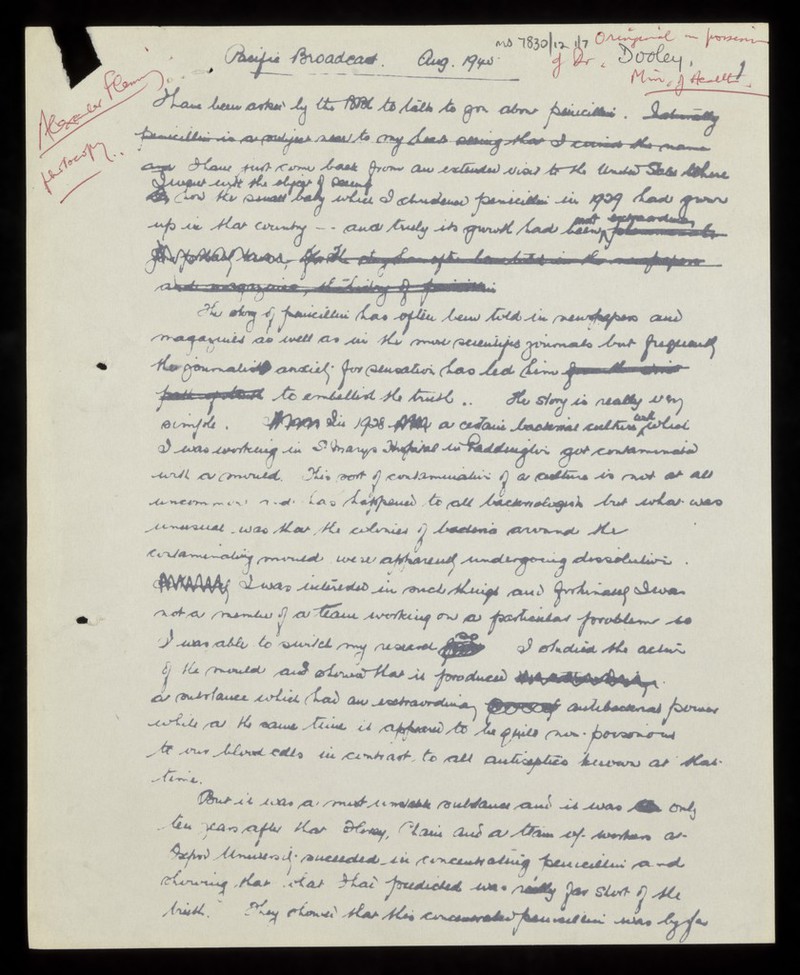 MS 7830/12 1/7 Original in possession
of Dr. Dooley,
Min. of Health.
1
Pacific Broadcast. Aug. 1945
Alexander Fleming
photocopy.
I have been asked by the BBC to talk to you about penicillin. Naturally
penicillin is a subject near to my heart seeing that I coined the name
and I have just come back from an extended visit to the United States where
I went with the object of seeing
how the small baby which I christened penicillin in 1929 had grown
up in that country -- and truly its growth had been most extraordinary
The story of penicillin has often been told in newspapers and
magazines as well as in the more scientific journals but frequently
the journalist's anxiety for sensation has led him from the strict
path of truth to embellish the truth .. The story is really very
simple. In 1928 a certain bacterial culture with which
I was working in St Marys Hospital in Paddington got contaminated
with a mould. This sort of contamination of a culture is not at all
uncommon and has happened to all bacteriologists but what was
unusual was that the colonies of bacteria around the
contaminating mould were apparently undergoing dissolution.
I was interested in such things and fortunately I was
not a member of a team working on a particular problem so
I was able to switch my research I studied the action
of the mould and showed that it produced
a substance which had an extraordinary antibacterial power
while at the same time it appeared to be quite non-poisonous
to our blood cells in contrast to all antiseptics known at that
time.
But it was a most unstable substance and it was only
ten years after that Florey, Chain and a team of workers at
Oxford University succeeded in concentrating penicillin and
showing that what I had predicted was really far short of the
truth. They showed that this concentrated penicillin was by far